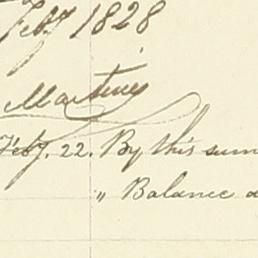 Feby 1828
Martines
Feby. 22. By this sum
" Balance